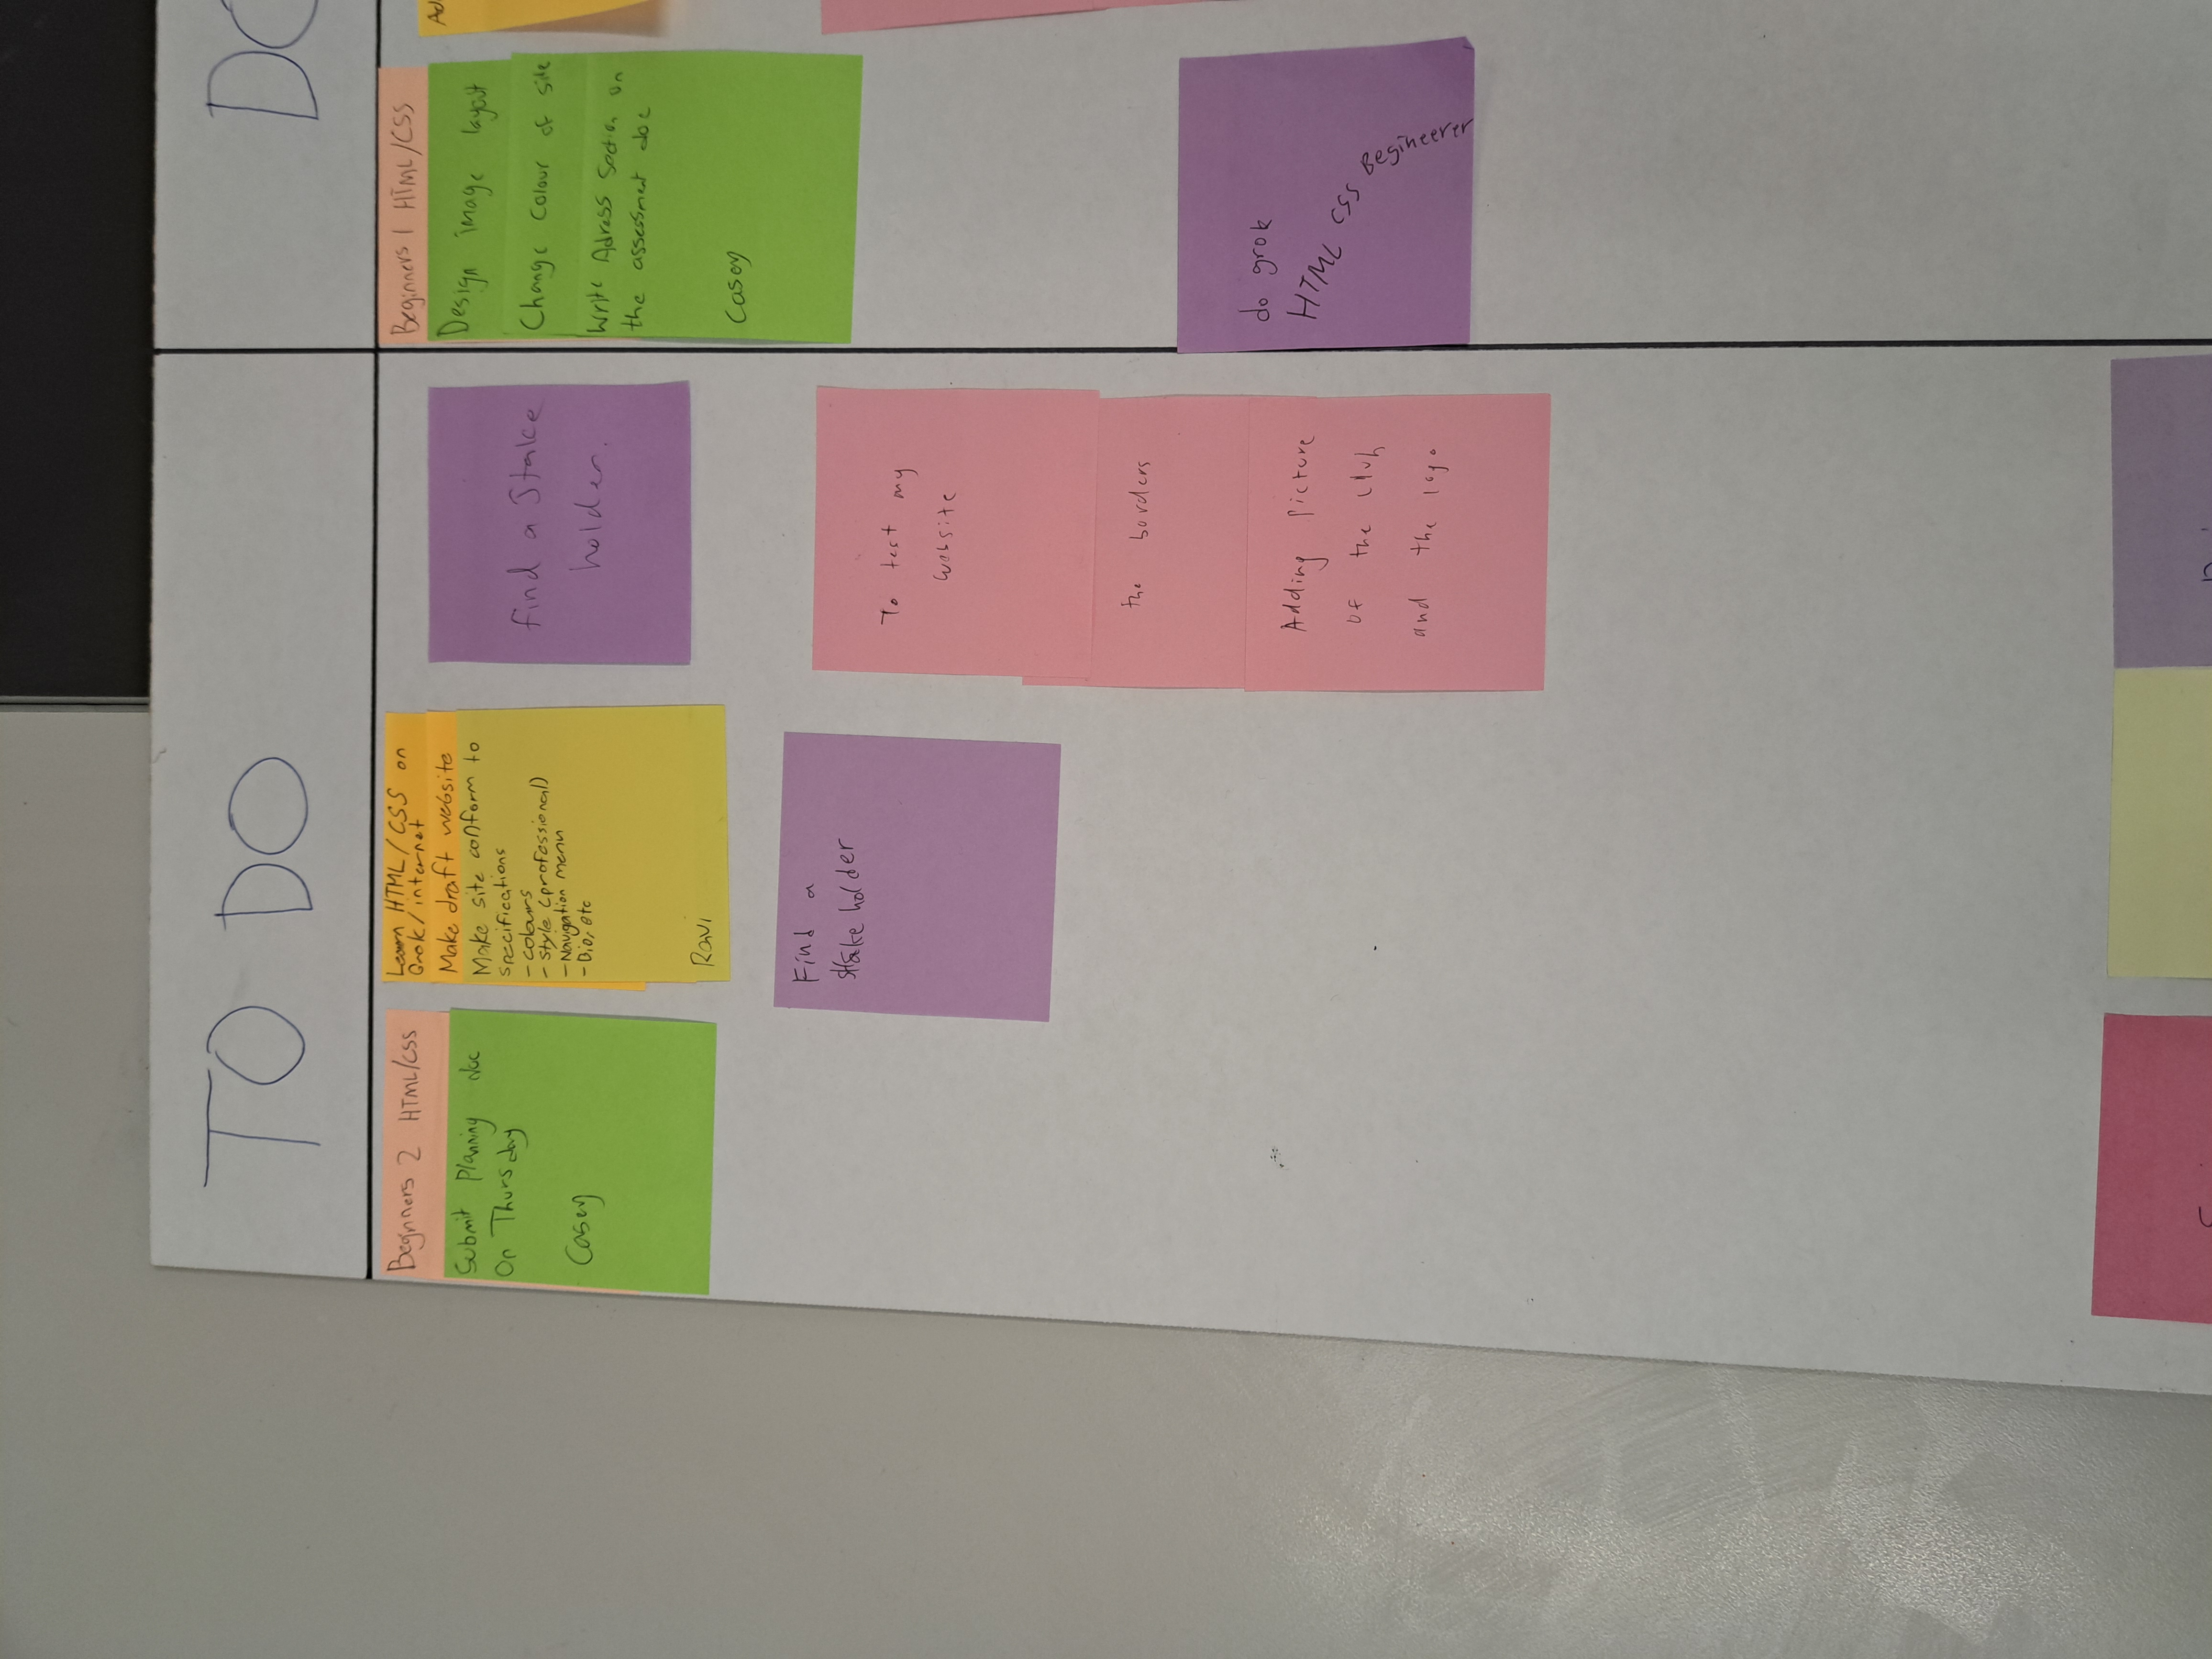 TO DO
Beginners 2 HTML/CSS
Submit Planning doc
On Thursday
Casey
Learn HTML/CSS on
Grok/internet
Make draft website
Make site conform to
specifications
- colours
- style (professional)
- Navigation menu
- Bio, etc
Ravi
find a Stake
holder.
Find a
stake holder
To test my
website
the borders
Adding picture
of the club
and the logo
Beginners 1 HTML/CSS
Design image layout
Change colour of site
Write Adress Section on
the assessment doc
Casey
do grok
HTML CSS Begineerer